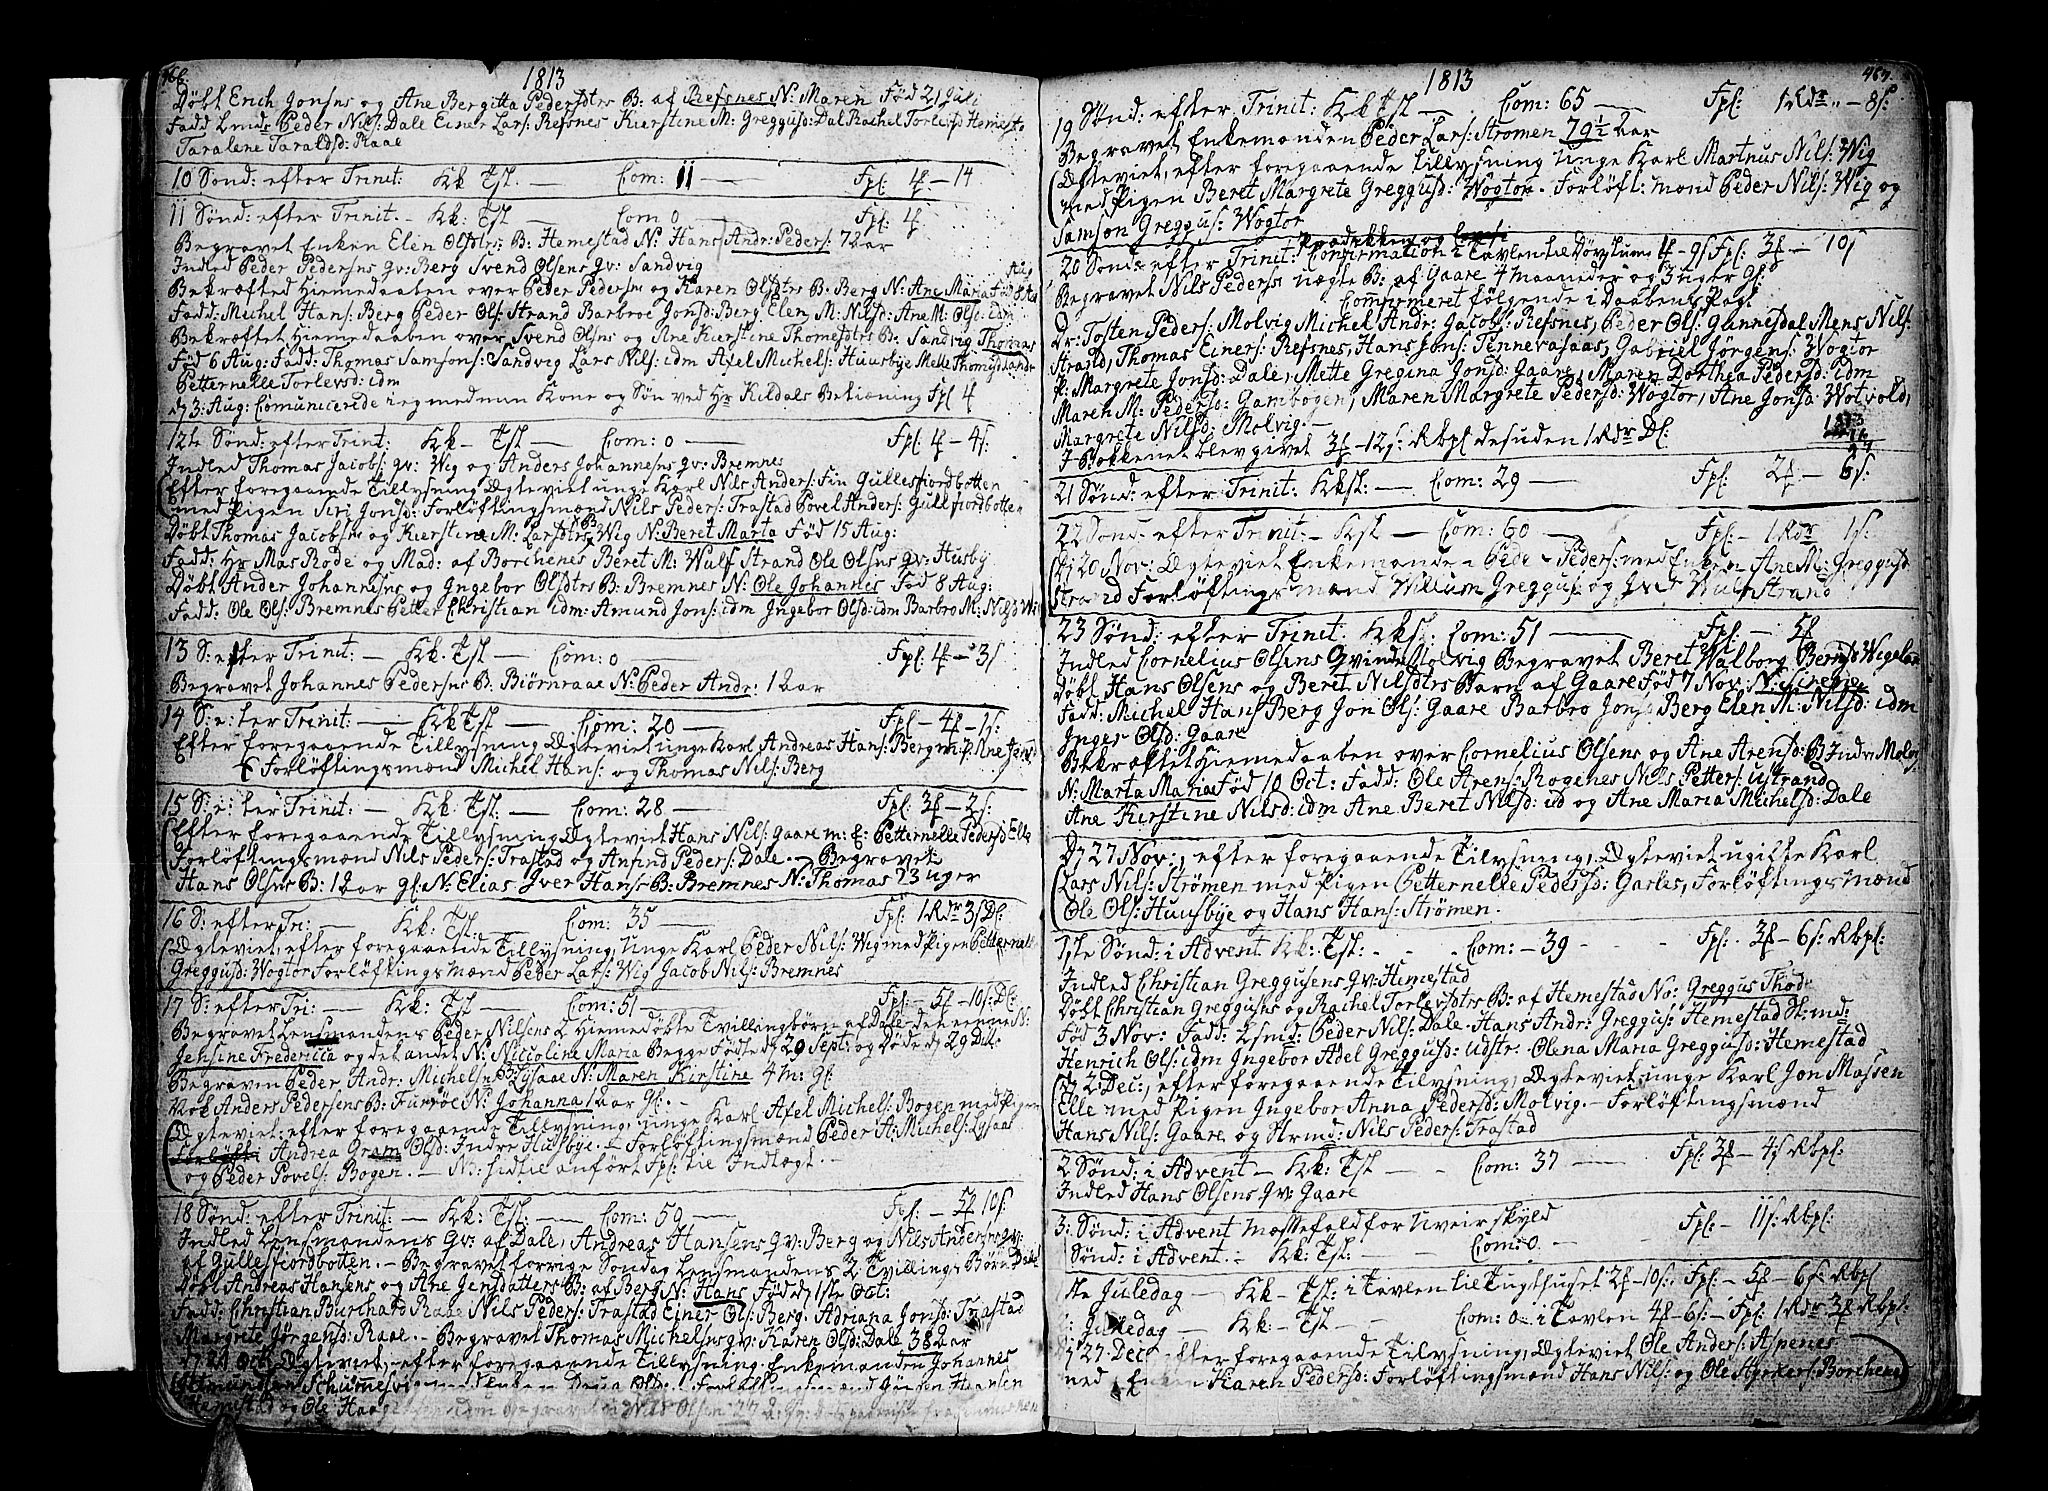 466.
1813
Døbt Erich Jonsns og Ane Bergitta Pedersdtrs B: af Refsnes N: Maren Fød 21 Juli
Fadd Lmd: Peder Nils: Dale Einer Lars: Refsnes Kierstine M: Greggusd: Dal Rachel Torlevsd Hemestd
Taralene Taraldsd: Raae
10 Sønd: efter Trinit: Kk: Tst. — Com: 11 — Fpl: 4f — 14
11 Sønd: efter Trinit. — Kk: Tst — Com 0 — Fpl: 4f
Begravet Enken Elen Olsdtrs: B: Hemestad N: Hans Andr: Peders: 7 aar
Indled Peder Pedersns gv: Berg Svend Olsens gv: Sandvig
Bekræfted Hiemedaaben over Peder Pedersns og Karen Olsdtrs B: Berg N: Ane Maria Fød 8 Aug
Fadd: Michel Hans: Berg Peder Ols: Strand Barbroe Jonsd: Berg Elen M: Nilsd: Ane M: Ols: idm
Bekræftet Hiemedaaben over Svend Olsns og Ane Kierstine Thomesdtrs B: Sandvig Thomas
Fød 6 Aug: Fadd: Thomas Samsons: Sandvig Lars Nils: idm Axel Michels: Huusbye Melle Thomisd Sandv
Petternelle Torlevsd: idm
d 73: Aug: Comunicerede ieg med min Kone og Søn ved Hr Kildals Betiæning Fpl 4
12te Sønd: efter Trint: Kk — Tst — Com: 0 — Fpl: 4f — 4s:
Indled Thomas Jacobs: gv: Wig og Anders Johannesns gv: Bremnes
Efter foregaaende Tillysning Ægteviet unge Karl Nils Anders: Fin Gullesfiordbotten
med Pigen Siri Jonsd: Forløftingsmænd Nils Peders: Trastad Povel Anders: Gullfiordbotten
Døbt Thomas Jacobsns og Kierstine M: Larsdtrs B: Wig N: Beret Marta Fød 15 Aug:
Fadd: Hr Mas Rode og Mad: af Borchenes Beret M: Wulf Strand Ole Olsns gv: Husby
Døbt Ander Johannesns og Ingebor Olsdtrs B: Bremnes N: Ole Johannes Fød 8 Aug:
Fadd: Ole Ols: Bremnes Petter Christian idm: Amund Jons: idm Ingebor Olsd: idm Barbro M: Nilsd Wig
13 S: efter Trinit: — Kk. Tst — Com: 0 — Fpl: 4f — 3s
Begravet Johannes Pedersns B: Biørnraae N: Peder Andr: 1 aar
14 S: e: ter Trinit: — Kk Tst — Com: 20 — Fpl — 4f — 1s:
Efter foregaaende Tillysning Ægteviet unge Karl Andreas Hans: Berg m: p: Ane Jensd
Forløftingsmænd Michel Hans: og Thomas Nils: Berg
15 S: e: ter Trinit: — Kk: Tst — Com: 28 — Fpl: 3f — 2s:
Efter foregaaende Tillysning Ægteviet Hans Nils: Gaare m: E: Petternelle Pedersd Elle
Forløftingsmænd Nils Peders: Trastad og Anfind Peders: Dale. — Begravet
Hans Olsns B: 1 aar gl: N: Elias Iver Hans: B: Bremnes N: Thomas 23 uger
16 S: efter Tri: — Kk: Tst — Com: 35 — Fpl: 1 Rdr 3s Dl:
Ægteviet: efter foregaaende Tillysning, Unge Karl Peder Nils: Wig med Pigen Petternelle
Greggusd: Wogtor Forløftingsmænd Peder Lars: Wig Jacob Nils: Bremnes
17 S: efter Tri: — Kk: Tst — Com: 51 — Fpl — 5f — 10s: Dl:
Begravet Lensmandens Peder Nilsens 2 Hiemedøbte Tvillingbørn af Dale: det eene N:
Jensine Fredericca og det andet N: Niccoline Maria Begge Fødte d 29 Sept: og Døde d 29 Dito
Begraven Peder Andr: Michelsns B: Lysaae N: Maren Kirstine 4 m: gl:
Nok Anders Pedersens B: Furrøe N: Johanna 1 aar gl: —
Ægteviet: efter foregaaende Tillysning, unge Karl Axel Michels: Bogen med Pigen
Andrea Gram Olsd: Indre Husbye. Forløftingsmænd Peder A: Michels: Lysaae
og Peder Povels: Bogen. — NB: hidtil anført Fpl: til Indlægt. —
18 Sønd: efter Trinit: — Kk: Tst: — Com: 50 — Fpl: — 5f 10s:
Indled Lensmandens Gv: af Dale, Andreas Hansens gv: Berg og Nils Andersns gv:
af Gullesfiordbotten. — Begravet forrige Søndag Lensmandens 2 Tvillings Børn Dale
Døbt Andreas Hansens og Ane Jensdatters B: af Berg N: Hans Fød d 1ste Oct:
Fadd: Christian Burchard Raae Nils Peders: Trastad Einer Ols: Berg. Adriana Jonsd: Trastad
Margrete Jørgensd: Raae. — Begravet Thomas Michelsns gv: Karen Olsd: Dale 38 2 ar
Oct: Ægteviet, efter foregaaende Tillysning. Enkemanden Johannes
Hemestad og Ole
467.
1813
19 Sønd: efter Trinit: Kk Tst — Com: 65 — Fpl: 1 Rdr „ — 8s:
Begravet Enkemanden Peder Lars: Strømen 79½ aar
Ægteviet, efter foregaaende Tillysning Unge Karl Martnus Nils: Wig
med Pigen Beret Margrete Greggusd: Wogtor. Forløft: mænd Peder Nils: Wig og
Samson Greggus: Wogtor
20 Sønd: efter Trinit: Confirmation i Tavlen til Døvstume 4 — 9s Fpl: 3f — 10s
Begravet Nils Peders: uægte B: af Gaare 4 Maaneder og 3 uger Gl:
Confirmeret følgende i Daabens Pagt
Dr: Tosten Peders: Molvig Michel Andr: Jacobs: Refsnes, Peder Ols: Gunnesdal Mens Nils:
Strand, Thomas Einers: Refsnes, Hans Jons: Tennevasaas, Gabriel Jørgens: Wogtor
P: Margrete Jonsd: Dale, Mette Gregina Jonsd: Gaare, Maren Dorthea Pedersd: idm
Maren M: Pedersd: Gambogen, Maren Margrete Pedersd: Wogtor, Ane Jonsd: Wotvold,
Margrete Nilsd: Molvig. —
I Bækkenet blev givet 3f — 12s: Rbpl desuden 1 Rdr Dl:
21 Sønd: efter Trinit: Kkst: — Com: 29 — Fpl: 2f — 6s:
22 Sønd: efter Trinit: — Kst — Com: 60 — Fpl: — 1 Rdr 1s:
D 20 Nov: Ægteviet Enkemanden Peder Peders: med Enken Ane M: Greggusd
Strand Forløftingsmænd Willum Greggus: og Iver Wulf Strand
23 Sønd: efter Trinit: Kkst: Com: 51 — Fpl: — 5f
Indled Cornelius Olsens Qvinde Molvig Begravet Beret Walborg Wigeland
Døbt Hans Olsens og Beret Nilsdtrs Barn af Gaare Fød 7 Nov: N:
Fadd: Michel Hans Berg Jon Ols: Gaare Barbro Jonsd Berg Elen M: Nilsd: idm
Inger Olsd: Gaare
Bekræftet Hiemedaaben over Cornelius Olsens og Ane Arensd: B Indre Molvig
N: Marta Maria Fød 10 Oct: Fadd: Ole Arens: Rogenes Nils Petters: ustrand
Ane Kirstine Nilsd: idm Ane Beret Nilsd: id og Ane Maria Michelsd: Dale
D 27 Nov:, efter foregaaende Tillysning, Ægteviet ugifte Karl
Lars Nils: Strömen med Pigen Petternelle Pedersd: Garles, Forløftingsmænd
Ole Ols: Huusbye og Hans Hans: Strömen.
1ste Sønd: i Advent Kk: Tst: — Com: — 39 — Fpl: 3f — 6s: Rbpl:
Indled Christian Greggusens Gv: Hemestad
Døbt Christian Greggusns og Rachel Torlevsdtrs B: af Hemestad No: Greggus Thode
Fød 3 Nov: Fadd: Lsmd: Peder Nils: Dale. Hans Andr: Greggus: Hemestad St: md:
Henrich Ols: idm Ingebor Adel Greggusd: udstr. Olena Maria Greggusd: Hemestad
D 2 Dec:, efter foregaaende Tilysning, Ægteviet: unge Karl Jon Massen
Elle med Pigen Ingebor Anna Pedersd: Molvig. — Forløftingsmænd
Hans Nils: Gaare og Strmd: Nils Peders: Trastad
2 Sønd: i Advent — Kk: Tst — Com: 37 — Fpl: 3f — 4s Rbpl:
Indled Hans Olsens Gv: Gaare
3: Sønd: i Advent Messefald for Uveirskyld Fpl: — 11s: Rbpl:
Sønd: i Advent. — Kk: Tst: — Com: 0. —
1te Juledag — Kk — Tst: i Tavlen til Tugthuset 2f — 10s: Fpl: — 5f — 6s: Rbpl
2: Juledag — Kk: — Tst — Com: 0 — i Tavlen 4f — 6s: — Fpl: 1 Rdr 3f Rbpl:
D 27 Dec: efter foregaaende Tilysning, Ægteviet Ole Anders: Aspenes
med Enken Karen Pedersd: Forløftingsmænd Hans Nils: og Ole Borchenes